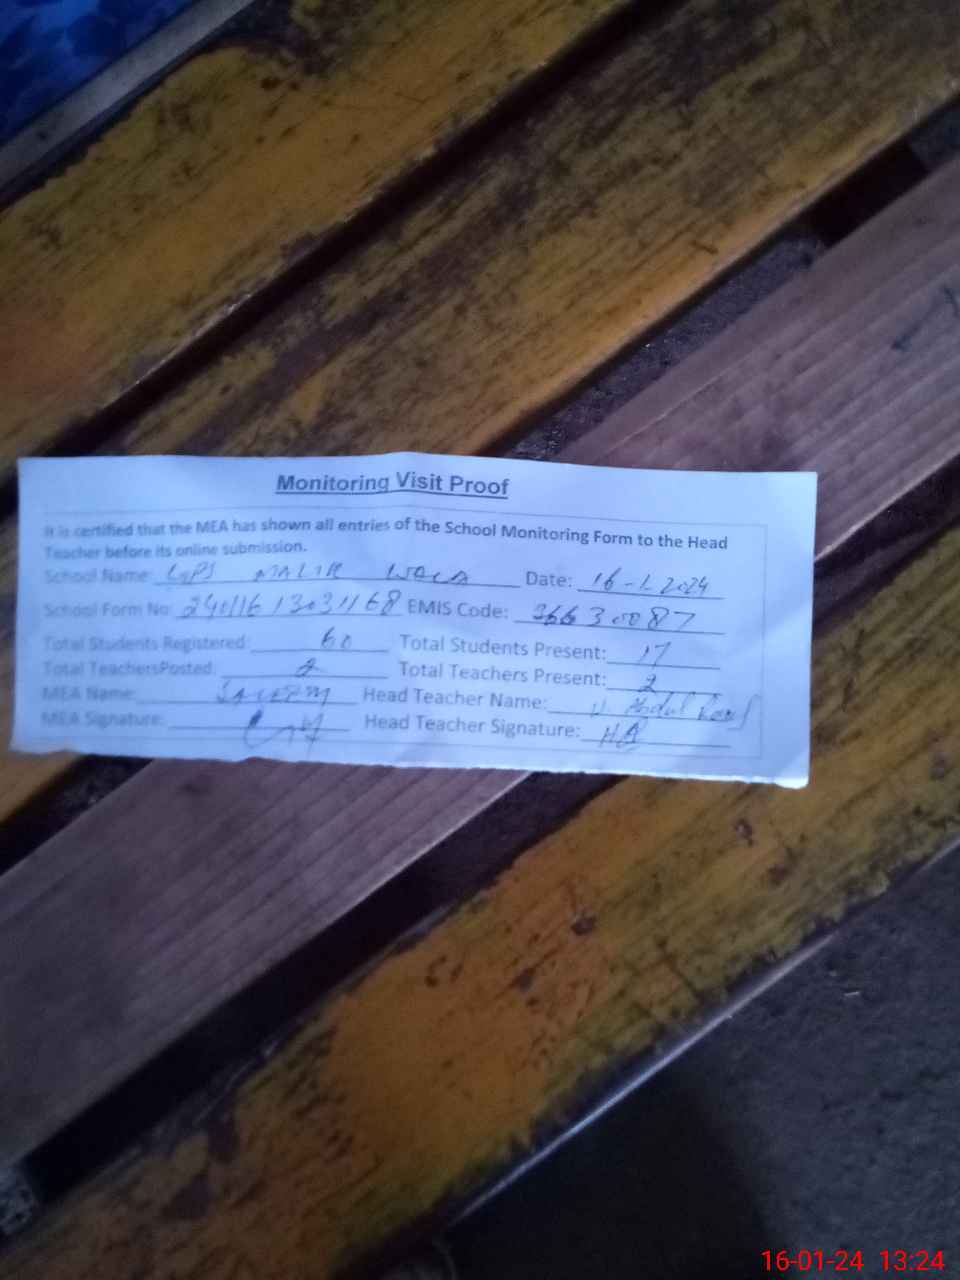 Monitoring Visit Proof
It is certified that the MEA has shown all entries of the School Monitoring Form to the Head
Teacher before its online submission.
School Name: GPS MALIK WALA Date: 16-1-2024
School Form No: 24011613031168 EMIS Code: 36630087
Total Students Registered: 60 Total Students Present: 17
Total TeachersPosted: 2 Total Teachers Present: 2
MEA Name: SALEEM Head Teacher Name: Abdul
MEA Signature: Head Teacher Signature: HA
16-01-24 13:24